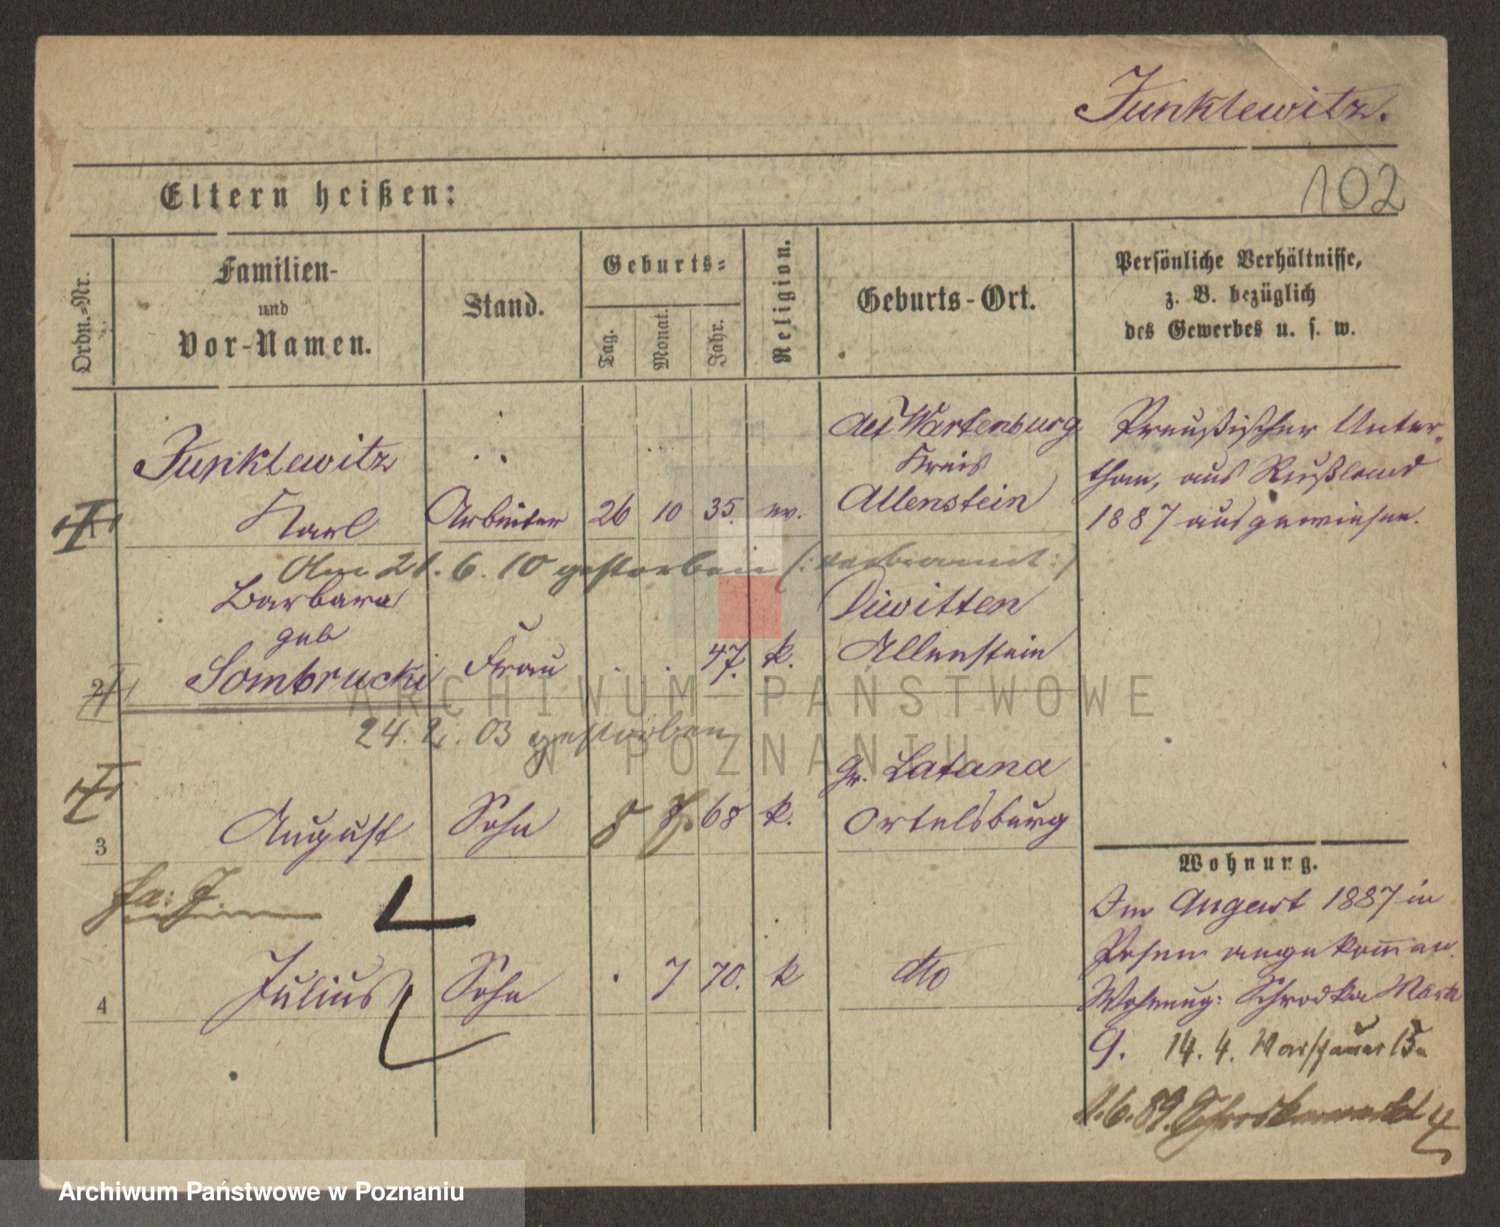 Junklewitz.
102
Eltern heißen:
Ordn.-Nr.
Familien-
und
Vor-Namen.
Stand.
Geburts=
Tag.
Monat.
Jahr.
Religion.
Geburts-Ort.
Persönliche Verhältnisse,
z. B. bezüglich
des Gewerbes u. s. w.
Junklewitz
Karl
Arbeiter
26
10
35.
ev.
Alt Wartenburg
Kreis
Allenstein
Preußischer Unter-
than, aus Rußland
1887 ausgewiesen.
Am 21. 6. 10 gestorben (: verbrannt :)
2
Barbara
geb
Sombrucki
Frau
.
.
47.
k.
Diwitten
Allenstein
24. 2. 03 gestorben
3
August
Sohn
8
7.
68
k.
Gr. Latana
Ortelsburg
4
Julius
Sohn
.
7
70.
k
dto
Wohnung.
Im August 1887 in
Posen angekommen.
Wohnung: Schrodka Markt
9. 14. 4. Warschauer 15a
1.6.89. Schrodkamarkt 4
ARCHIWUM PAŃSTWOWE
W POZNANIU
Archiwum Państwowe w Poznaniu